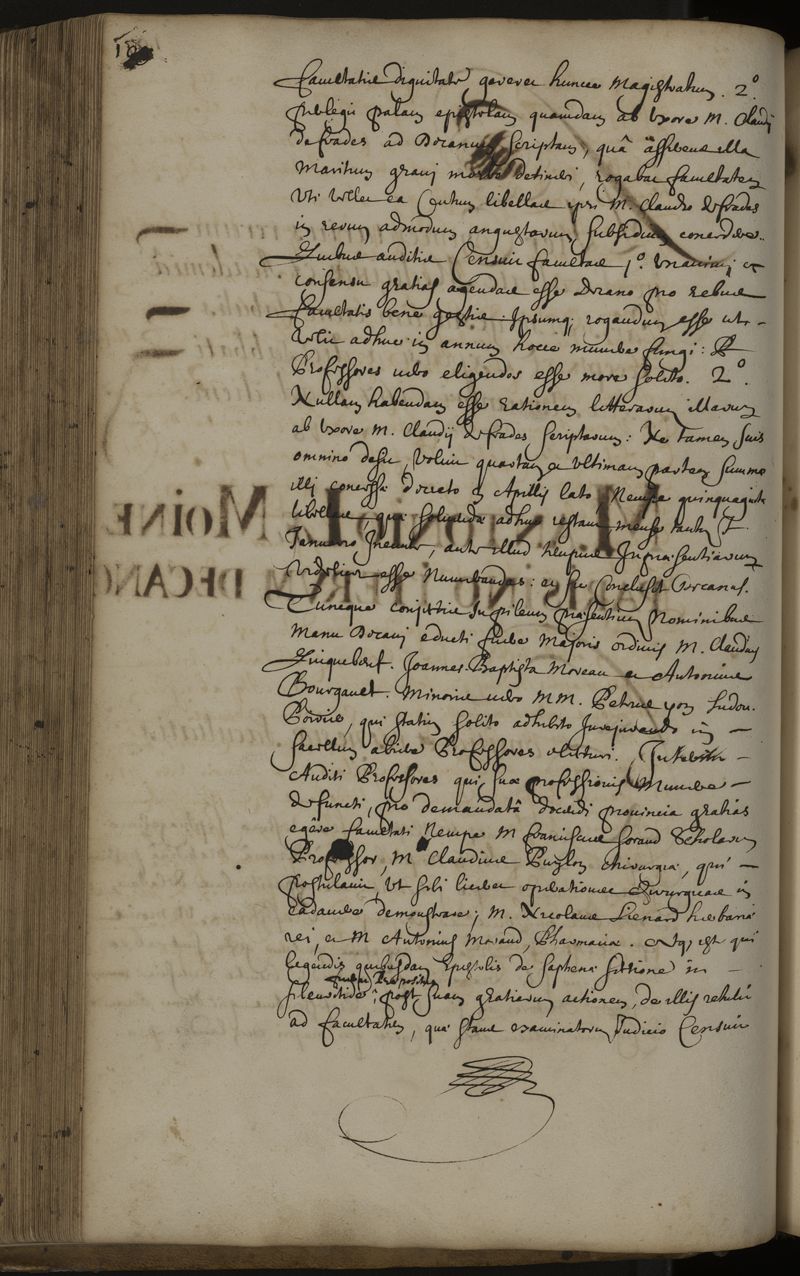 Facultatis dignitate gereret hunce Magistratum. 2°.
perlegit palam epistolam quamdam ab Uxore M. Claudij
de frades ad Decanum scriptam, quâ asserens illa
Maritum gravj morbo detineri, rogabat facultatem
Uti vellet ea Centum libellas ipsi M. Claudio de frades
in rerum admodum angustarum subsidium concedere.
Quibus auditis Censuit facultas 1°. Unanimj et
consensu gratias agendas esse Decano pro rebus
facultatis bene gestis. Ipsumq; rogandum esse ut
velit adhuc in annum hocce munere fungi: Et
Professores vero eligendos esse more solito. 2°.
Nullam habendam esse rationem litterarum illarum
ab Uxore M. Claudij de frades scriptarum: Ne tamen suis
omnino desit, voluit quartam et ultimam partem summæ
illj concessæ decreto Aprilis lato, Nempe quinquaginta
libellas, quæ solvendæ adhuc restant mense
Januario ineunte, ante illud tempus
esse Numerandas: et sic Conclusit Decanus.
Tuncque conjectis in pileum præsentium Nominibus
Manu Decanj educti fuere Majoris ordinis M. Claudius
Quiquebeuf. Joannes Baptista Moreau et Antonius
Bourgault. Minoris vero MM. Petrus yon Ludou.
Poirier, qui statim solito adhibito Jurejurando in
sacellum abiere Professores electuri. Interim
Auditi Professores qui suæ professionis Munere
defuncti, pro demandatâ docendi provincia gratias
egere facultati Nempe M. Scholarum
Professor, Mr Claudius Puylon chirurgiæ, qui
postulavit, Ut sibi liceret operationes chirurgicas in
cadavere demonstrare; M. Nicolaus Lienard herbariæ
rei, et M Antonius Morand, Pharmaciæ. Atq; is est qui
legendis quibusdam Epistolis de Saphenæ sectione in
pleuritide præpositus post suam gratiarum actionem, de illis retulit
ad facultatem, quæ stans examinatorum Judicio Censuit
MOINE
DECANO